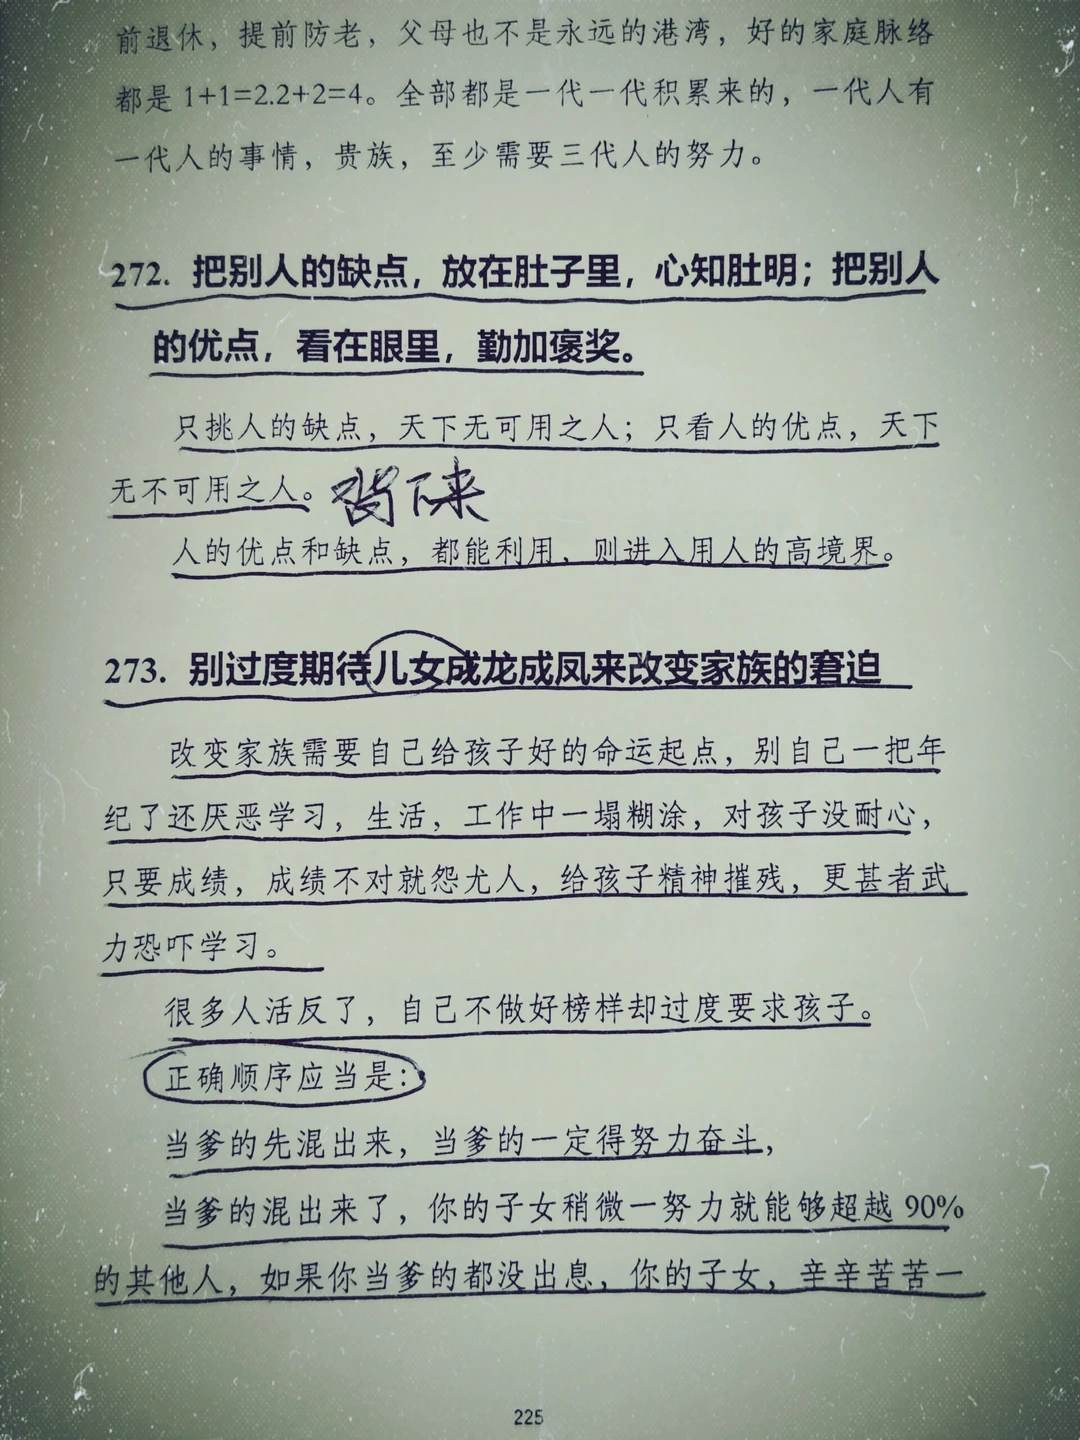 前退休，提前防老，父母也不是永远的港湾，好的家庭脉络
都是1+1=2.2+2=4。全部都是一代一代积累来的，一代人有
一代人的事情，贵族，至少需要三代人的努力。
272. 把别人的缺点，放在肚子里，心知肚明；把别人
的优点，看在眼里，勤加褒奖。
只挑人的缺点，天下无可用之人；只看人的优点，天下
无不可用之人。背下来
人的优点和缺点，都能利用，则进入用人的高境界。
273. 别过度期待儿女成龙成凤来改变家族的窘迫
改变家族需要自己给孩子好的命运起点，别自己一把年
纪了还厌恶学习，生活，工作中一塌糊涂，对孩子没耐心，
只要成绩，成绩不对就怨尤人，给孩子精神摧残，更甚者武
力恐吓学习。
很多人活反了，自己不做好榜样却过度要求孩子。
正确顺序应当是：
当爹的先混出来，当爹的一定得努力奋斗，
当爹的混出来了，你的子女稍微一努力就能够超越90%
的其他人，如果你当爹的都没出息，你的子女，辛辛苦苦一
225